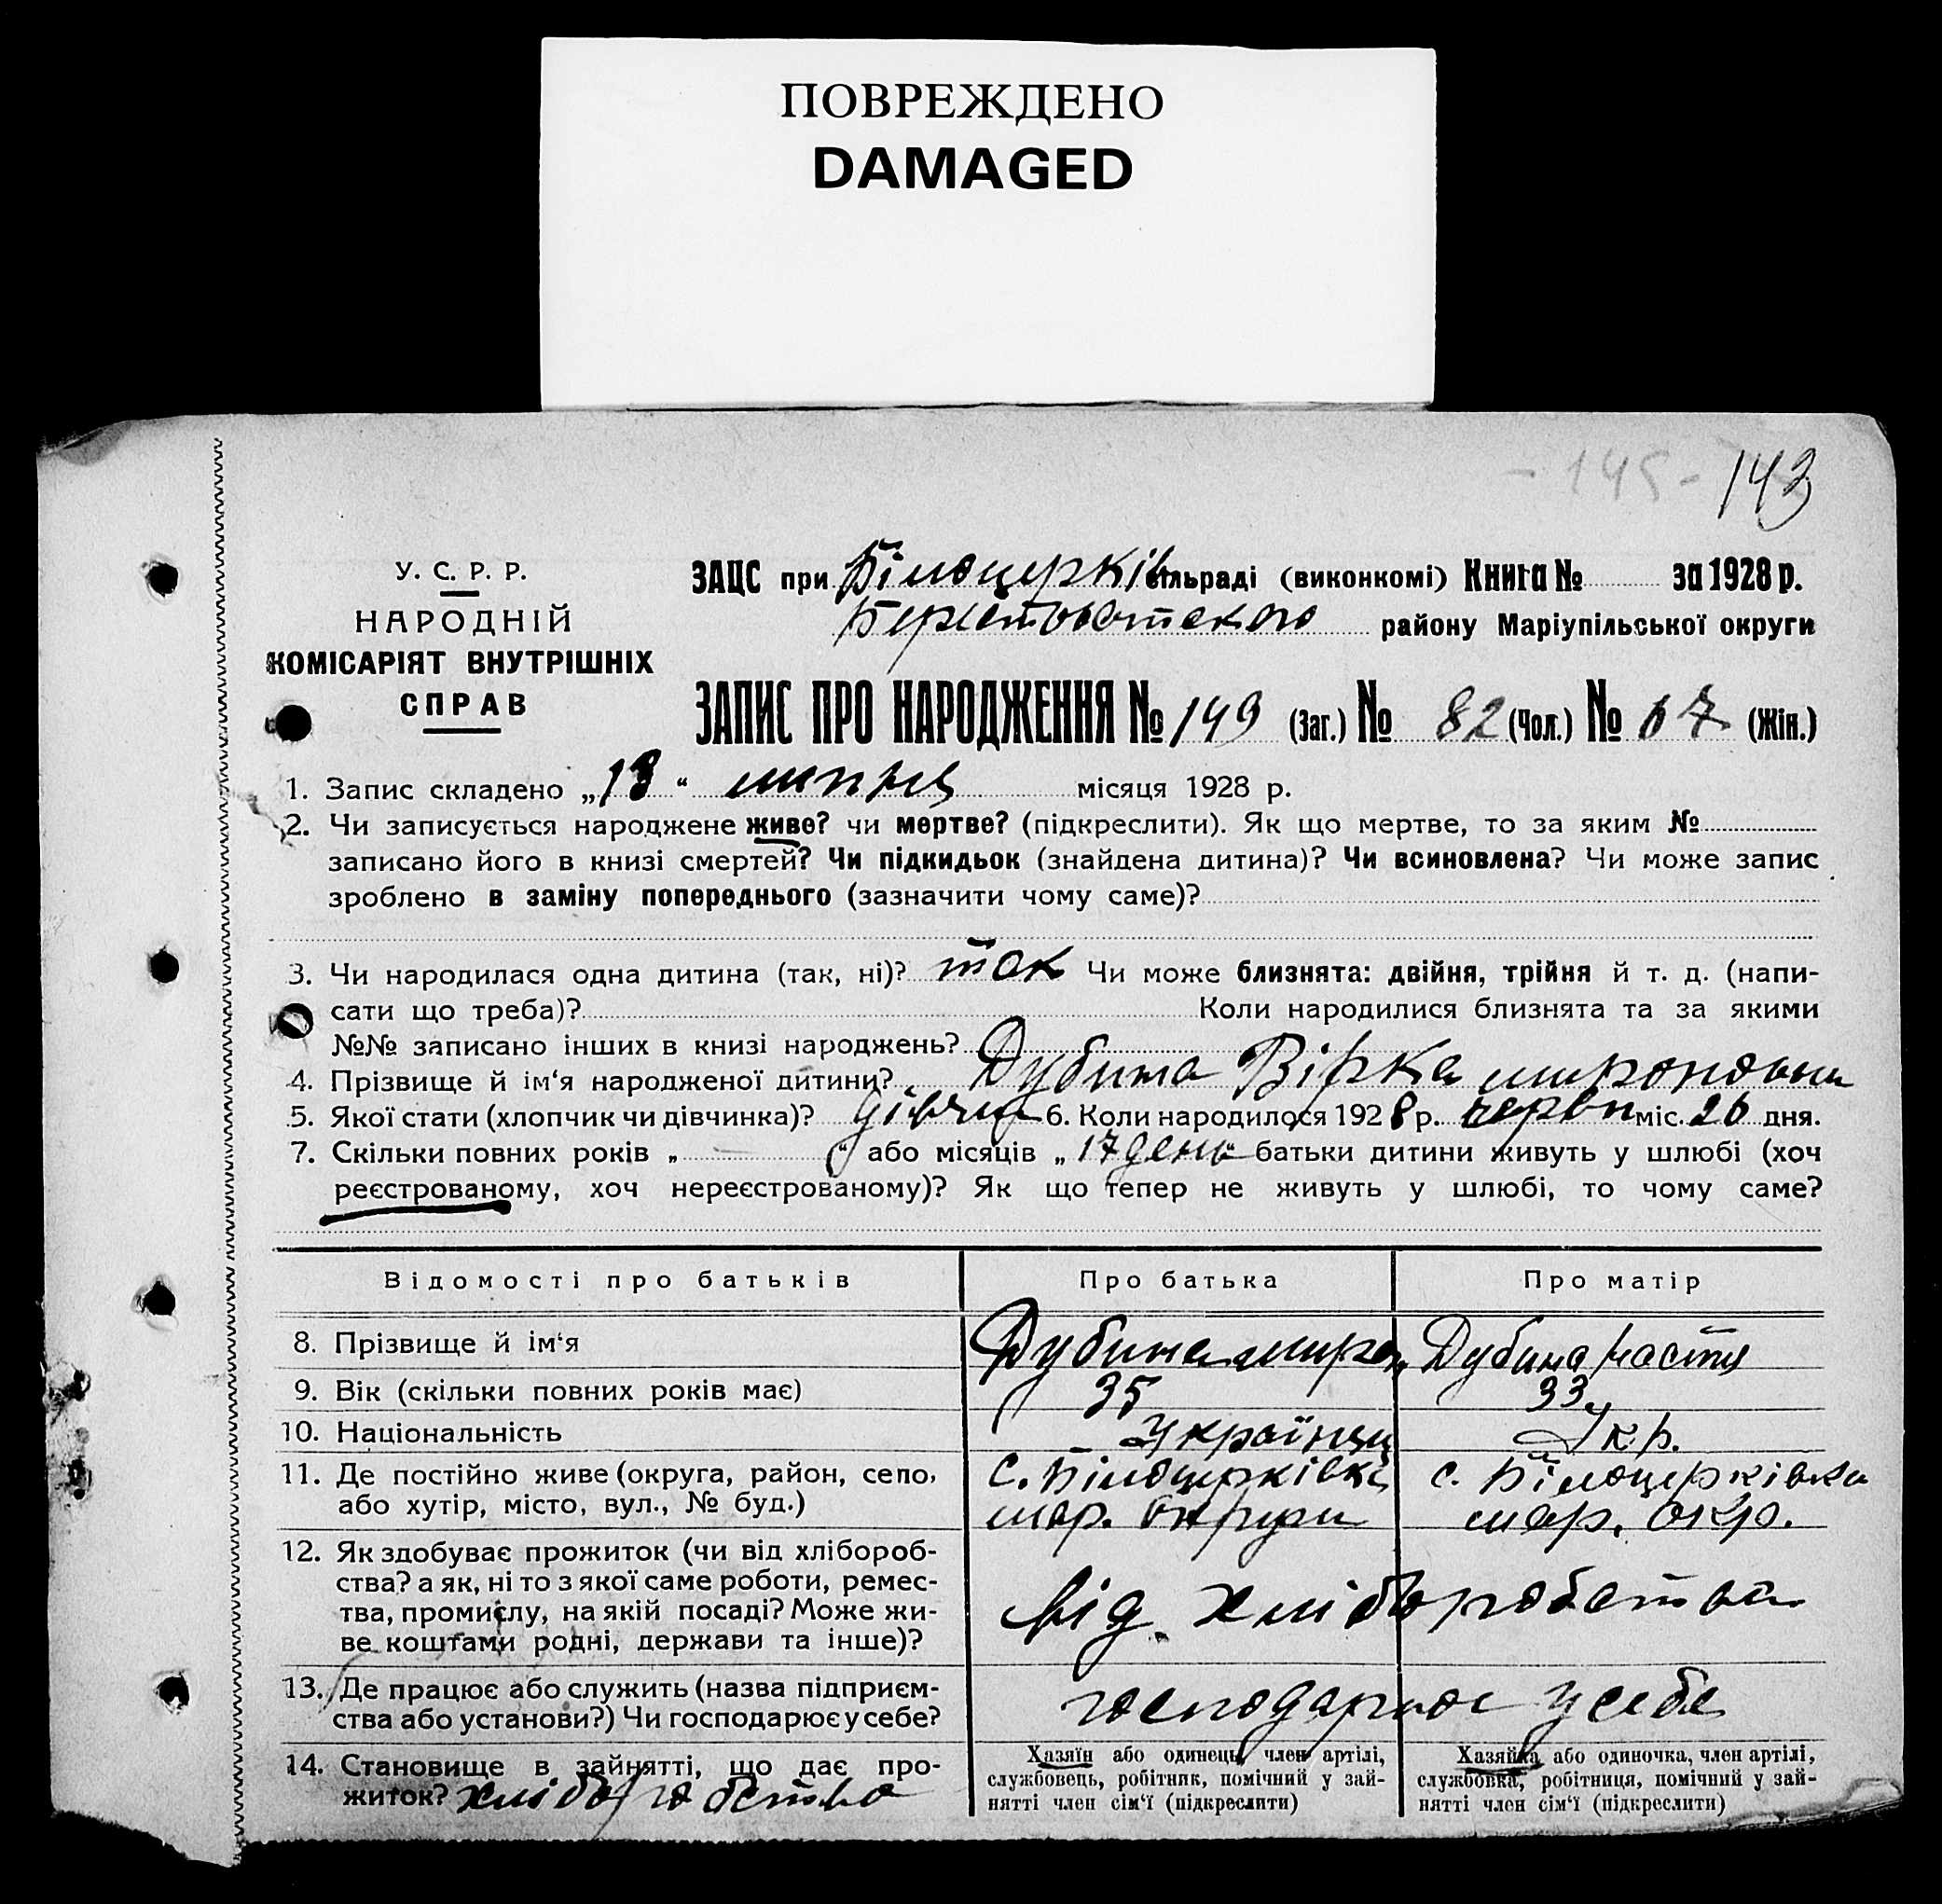 ПОВРЕЖДЕНО
DAMAGED
- 145 - 143
У. С. Р. Р.
НАРОДНІЙ
КОМІСАРІЯТ ВНУТРІШНІХ
СПРАВ
ЗАЦС при Білоцерків сільраді (виконкомі) Книга № за 1928 р.
району Маріупільської округи
ЗАПИС ПРО НАРОДЖЕННЯ № 149 (Заг.) № 82 (Чол.) № 67 (Жін.)
1. Запис складено „13“ липня місяця 1928 р.
2. Чи записується народжене живе? чи мертве? (підкреслити). Як що мертве, то за яким №
записано його в книзі смертей? Чи підкидьок (знайдена дитина)? Чи всиновлена? Чи може запис
зроблено в заміну попереднього (зазначити чому саме)?
3. Чи народилася одна дитина (так, ні)? так Чи може близнята: двійня, трійня й т. д. (напи-
сати що треба)? Коли народилися близнята та за якими
№№ записано інших в книзі народжень?
4. Прізвище й ім‘я народженої дитини? Дубина Вірка мироновна
5. Якої стати (хлопчик чи дівчинка)? дівчин 6. Коли народилося 1928 р. червн міс. 26 дня.
7. Скільки повних років „ “ або місяців „17 день“ батьки дитини живуть у шлюбі (хоч
реєстрованому, хоч нереєстрованому)? Як що тепер не живуть у шлюбі, то чому саме?
Відомості про батьків Про батька Про матір
8. Прізвище й ім‘я Дубина мирон Дубина Настя
9. Вік (скільки повних років має) 35 33
10. Національність Українец Укр.
11. Де постійно живе (округа, район, село, с. Білоцерківка с. Білоцерківка
або хутір, місто, вул., № буд.) мар. округи мар. окр.
12. Як здобуває прожиток (чи від хлібороб-
ства? а як, ні то з якої саме роботи, ремес-
тва, промислу, на якій посаді? Може жи- від хліборобства
ве коштами родні, держави та інше)?
13. Де працює або служить (назва підприєм- господарює у себе
ства або установи?) Чи господарює у себе?
14. Становище в зайнятті, що дає про- Хазяїн або одинець, член артілі, Хазяйка або одиночка, член артілі,
житок? хліборобство службовець, робітник, помічний у зай- службовка, робітниця, помічний у зай-
нятті член сім‘ї (підкреслити) нятті член сім‘ї (підкреслити)